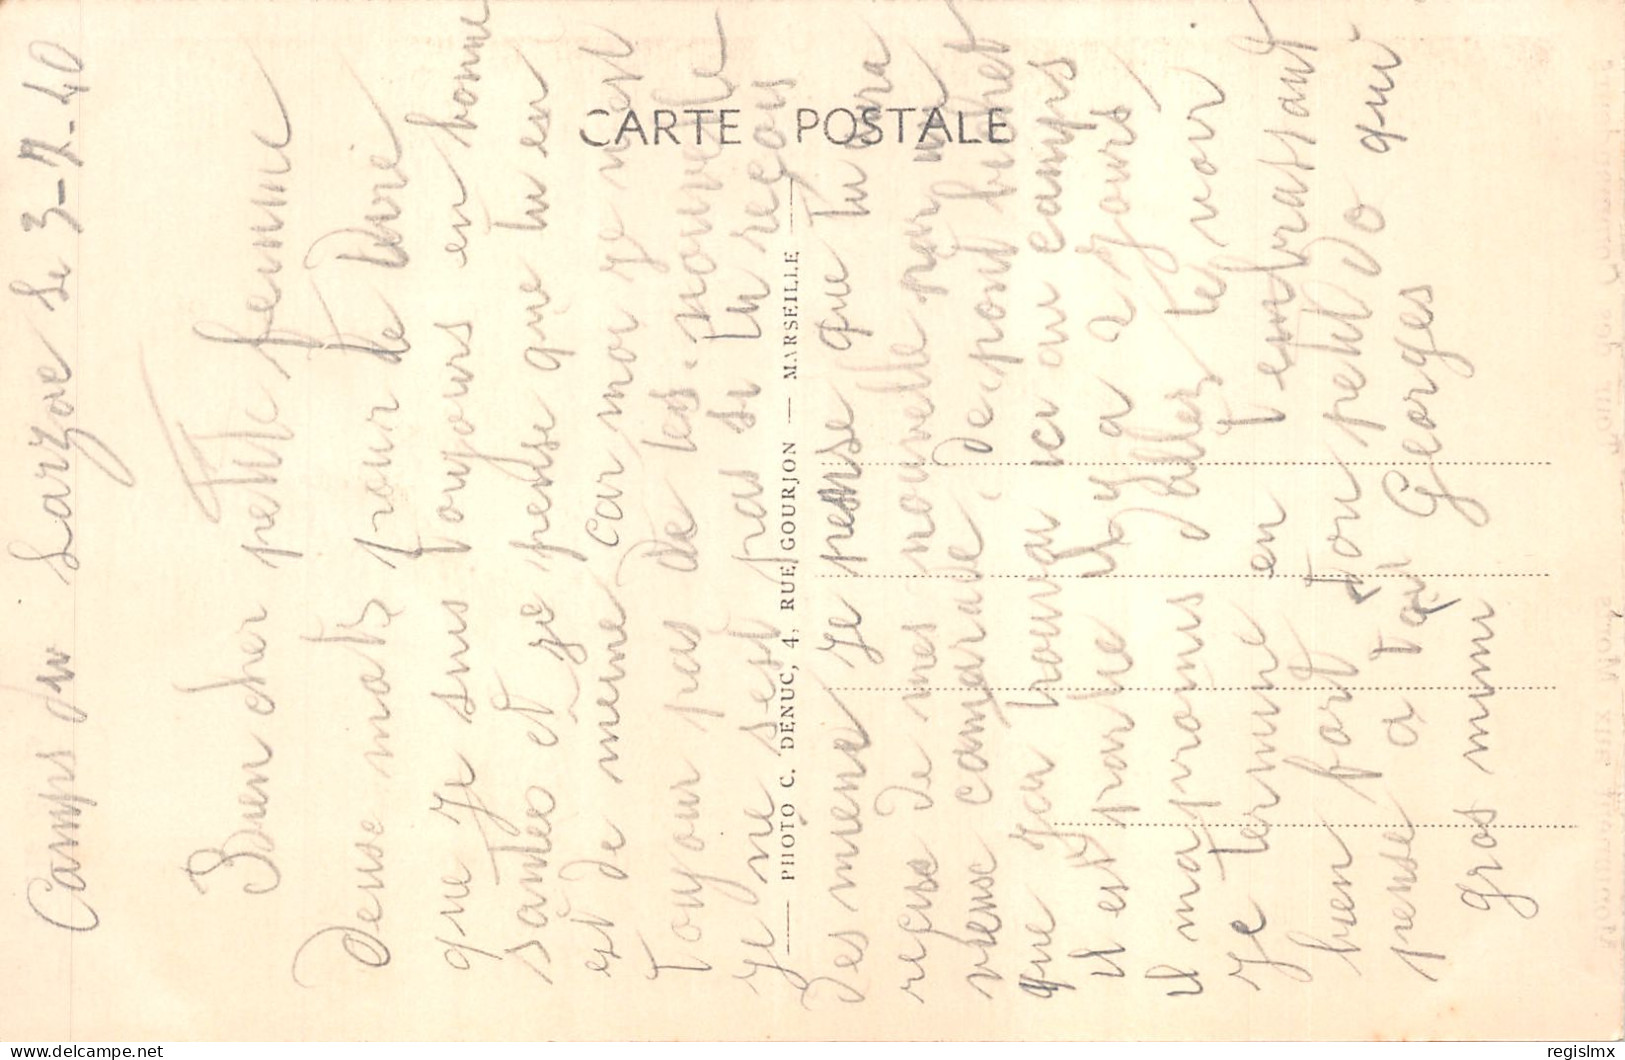 Camps du Larzac le 3-7-40
Bien cher petite femme
Deux mots pour te dire
que je suis toujours en bonne
santée et je pense que tu en
est de meme car moi je n'est
toujour pas de tes nouvelle
je ne sest pas si tu reçois
des miens je pense que tu ora
reçus de mes nouvelle par un
vieux camarade de pont
que j'ai trouvai ici au camps
il est partie il y a 2 jours
il ma promis d'aller te voir
je termine en t'embrassant
bien fort ton petit Do qui
pense a toi Georges
gros mimi
CARTE POSTALE
PHOTO C. DENUC, 4, RUE GOURJON — MARSEILLE
regislmx